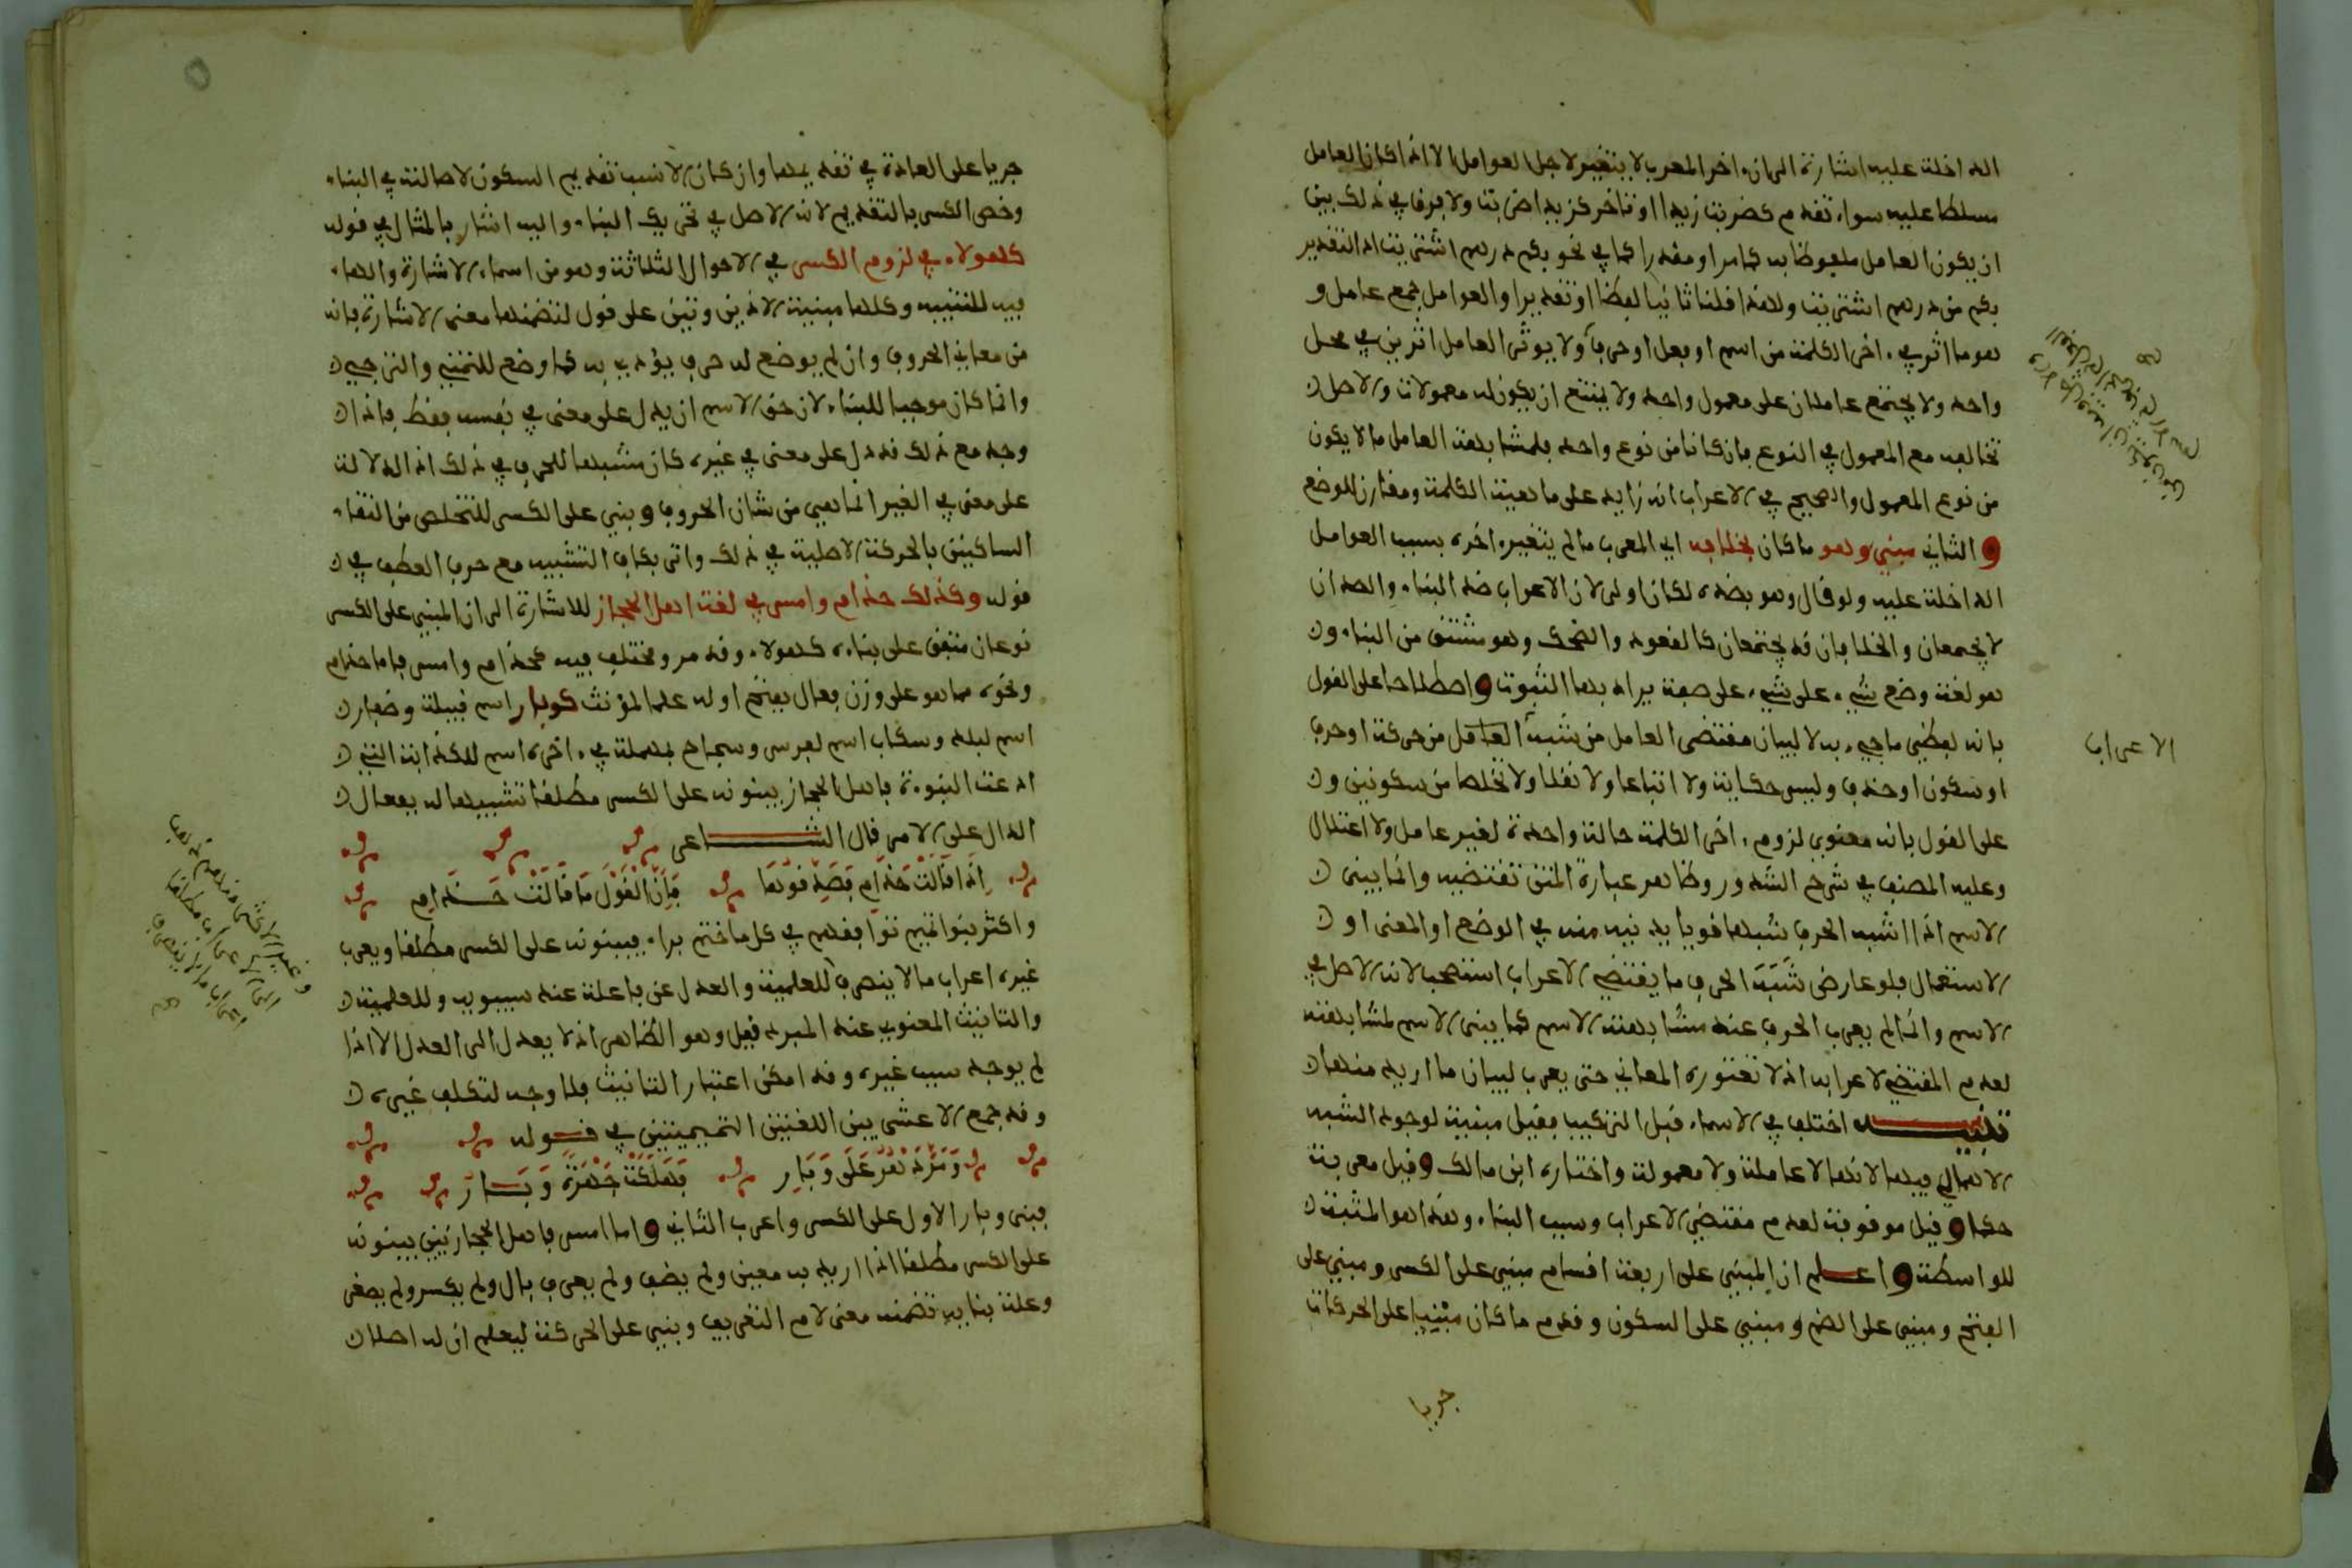 الداخلة عليه اشارة الى ان اخر المعرب لا يتغير لاجل العوامل الا اذا كان العامل
مسلطا عليه سواء تقدم كضربت زيدا او تاخر كزيدا ضربت ولا فرق في ذلك بين
ان يكون العامل ملفوظا به كما مر او مقدرا كما في نحو بكم درهم اشتريت اذ التقدير
بكم من درهم اشتريت ولهذا قلنا ثانيا لفظا او تقديرا والعوامل جمع عامل و
هو ما اثر في اخر الكلمة من اسم او فعل او حرف ولا يوثر العامل اثرين في محل
واحد ولا يجتمع عاملان على معمول واحد ولا يمتنع ان يكون له معمولات والاصل
تخالفه مع المعمول في النوع فان كانا من نوع واحد فلمشابهة العامل ما لا يكون
من نوع المعمول والصحيح في الاعراب انه زايد على ماهية الكلمة ومقارن للوضع
والثاني مبني وهو ما كان بخلافه اي المعرب ما لم يتغير اخره بسبب العوامل
الداخلة عليه ولو قال وهو بضده لكان اولى لان الاعراب ضد البناء والضدان
لا يجمعان والخلافان قد يجتمعان كالقعود والضحك وهو مشتق من البناء و
هو لغة وضع شيء على شيء على صفة يراد بها الثبوت واصطلاحا على القول
بانه لفظي ما جيء به لا لبيان مقتضى العامل من شبه العامل من حركة او حرف
او سكون او حذف وليس حكاية ولا اتباعا ولا نقلا ولا تخلصا من سكونين و
على القول بانه معنوي لزوم اخر الكلمة حالة واحدة لغير عامل ولا اعتلال
وعليه المصنف في شرح الشذور وظاهر عبارة المتن تقتضيه وانما يبنى
الاسم اذا اشبه الحرف شبها قويا يدنيه منه في الوضع او المعنى او
الاستعمال فلو عارض شبه الحرف ما يقتضي الاعراب استصحب لانه الاصل في
الاسم وانما لم يعرب الحرف عند مشابهته الاسم كما يبنى الاسم لمشابهته
لعدم المقتضي لاعرابه اذ لا تعتوره المعاني حتى يعرب لبيان ما اريد منها
تنبيه اختلف في الاسماء قبل التركيب فقيل مبنية لوجود الشبه
الاهمالي فيها لانها لا عاملة ولا معمولة واختاره ابن مالك وقيل معربة
حكما وقيل موقوفة لعدم مقتضي الاعراب وسبب البناء وهذا هو المثبت
للواسطة واعلم ان المبني على اربعة اقسام مبني على الكسر و مبني على
الفتح و مبني على الضم و مبني على السكون وقدم ما كان مبنيا على الحركات
جريا
الاعراب
جريا على العادة في تقديمها وان كان الانسب تقديم السكون لاصالته في البناء
وخص الكسر بالتقديم لانه الاصل في تحريك البناء واليه اشار بالمثال في قوله
كهولاء في لزوم الكسر في الاحوال الثلاثة وهو من اسماء الاشارة والهاء
فيه للتنبيه وكلها مبنية الا ذين وتين على قول لتضمنها معنى الاشارة فانه
من معاني الحروف وان لم يوضع له حرف يؤدى به كما وضع للتمني والترجي
وانما كان موجبا للبناء لان حق الاسم ان يدل على معنى في نفسه فقط فاذا
وجد مع ذلك قد دل على معنى في غيره كان مشبها للحرف في ذلك اذ الدلالة
على معنى في الغير انما هي من شان الحروف وبني على الكسر للتخلص من التقاء
الساكنين بالحركة الاصلية في ذلك واتى بكاف التشبيه مع حرف العطف في
قوله وكذلك حذام وامس في لغة اهل الحجاز للاشارة الى ان المبني على الكسر
نوعان متفق على بناءه كهولاء وقد مر ومختلف فيه كحذام وامس فاما حذام
ونحوه مما هو على وزن فعال بفتح اوله علما لمؤنث كوبار اسم قبيلة وضفار
اسم لبلد وسكاب اسم لفرس وسجاح بمهملة في اخره اسم للكذابة التي
ادعت النبوءة فاهل الحجاز يبنونه على الكسر مطلقا تشبيها له بفعال
الدال على الامر قال الشاعر
اذا قالت حذام فصدقوها فان القول ما قالت حذام
واكثر بنو تميم توافقهم في كل ما ختم براء فيبنونه على الكسر مطلقا ويعرب
غيره اعراب ما لا ينصرف للعلمية والعدل عن فاعلة عند سيبويه وللعلمية
والتانيث المعنوي عند المبرد قيل وهو الظاهر اذ لا يعدل الى العدل الا اذا
لم يوجد سبب غيره وقد امكن اعتبار التانيث فلا وجه لتكلف غيره
وقد جمع الاعشى بين اللغتين التميميتين في قوله
ومر دهر على وبار فهلكت جهرة وبار
فبنى وبار الاول على الكسر واعرب الثاني واما امس فاهل الحجاز يبنونه
على الكسر مطلقا اذا اريد به معين ولم يضف ولم يعرف بال ولم يكسر ولم يصغر
وعلة بنايه تضمنه معنى لام التعريف وبني على الحركة ليعلم ان له اصلا